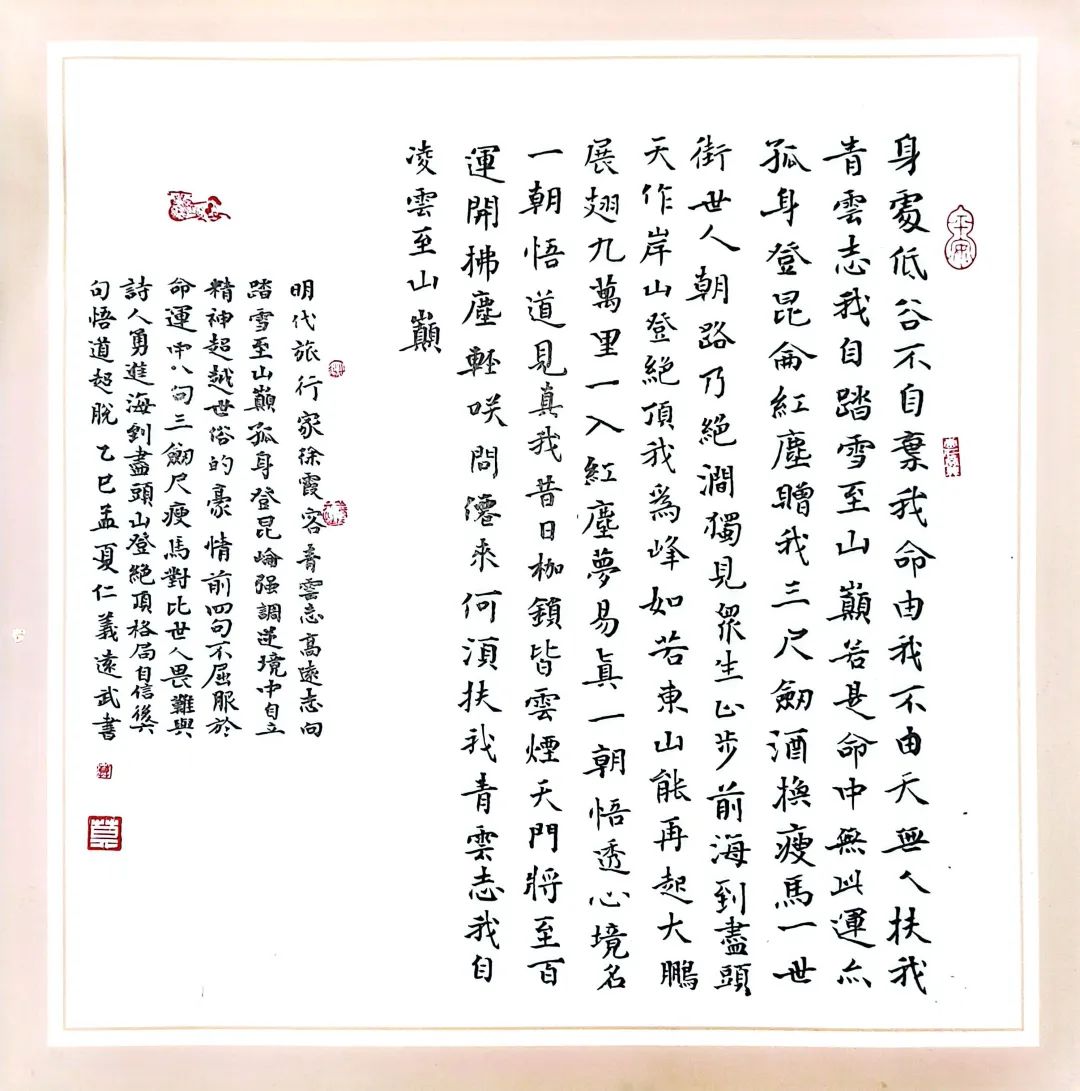 身處低谷不自棄我命由我不由天無人扶我
青雲志我自踏雪至山巔若是命中無此運亦
孤身登昆侖紅塵贈我三尺劒酒換瘦馬一世
街世人朝路乃絕澗獨見眾生止步前海到盡頭
天作岸山登絕頂我為峰如若東山能再起大鵬
展翅九萬里一入紅塵夢易真一朝悟透心境名
一朝悟道見真我昔日枷鎖皆雲煙天門將至百
運開拂塵輕咲問僊來何須扶我青雲志我自
凌雲至山巔
明代旅行家徐霞客青雲志高遠志向
踏雪至山巔孤身登昆崙强調逆境中自立
精神超越世俗的豪情前四句不屈服於
命運中八句三劒尺瘦馬對比世人畏難與
詩人勇進海到盡頭山登絕頂格局自信後六
句悟道超脫乙巳孟夏仁義遠武書
平安